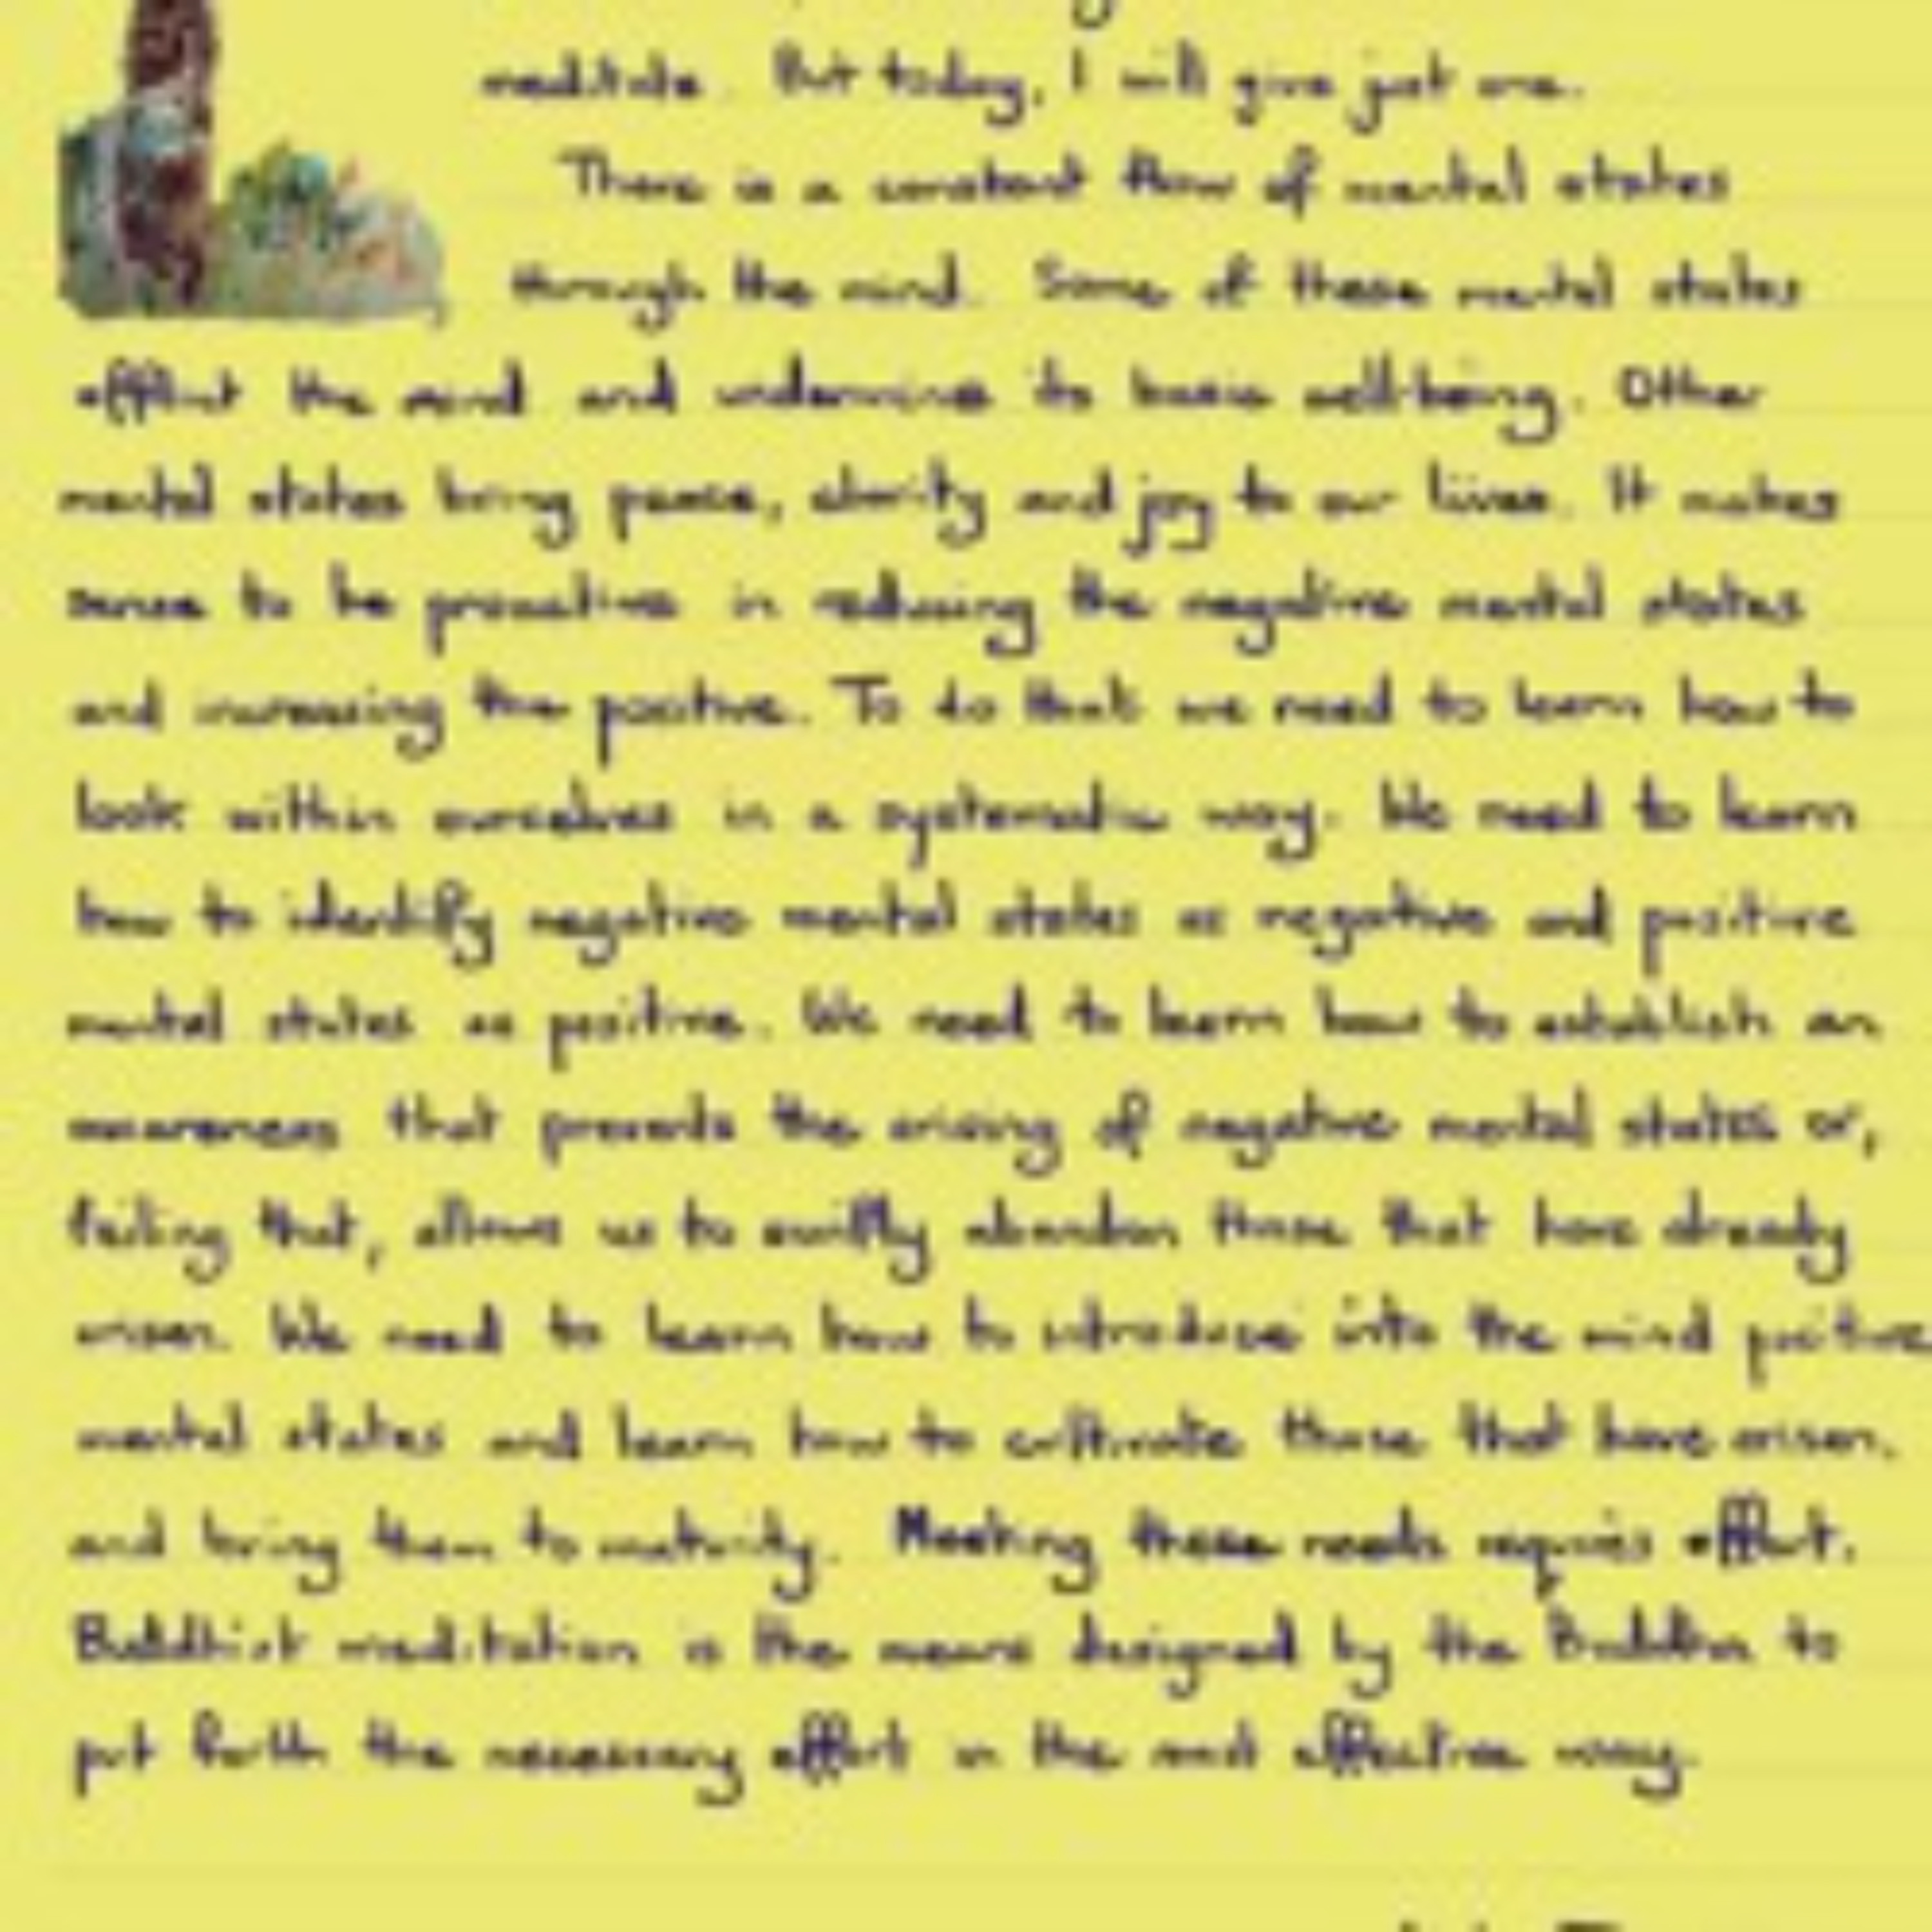 meditate. But today, I will give just one.
There is a constant flow of mental states
through the mind. Some of these mental states
afflict the mind and undermine its basic well-being. Other
mental states bring peace, clarity and joy to our lives. It makes
sense to be proactive in reducing the negative mental states
and increasing the positive. To do that we need to learn how to
look within ourselves in a systematic way. We need to learn
how to identify negative mental states as negative and positive
mental states as positive. We need to learn how to establish an
awareness that prevents the arising of negative mental states or,
failing that, allows us to swiftly abandon those that have already
arisen. We need to learn how to introduce into the mind positive
mental states and learn how to cultivate those that have arisen,
and bring them to maturity. Meeting these needs requires effort.
Buddhist meditation is the means designed by the Buddha to
put forth the necessary effort in the most effective way.